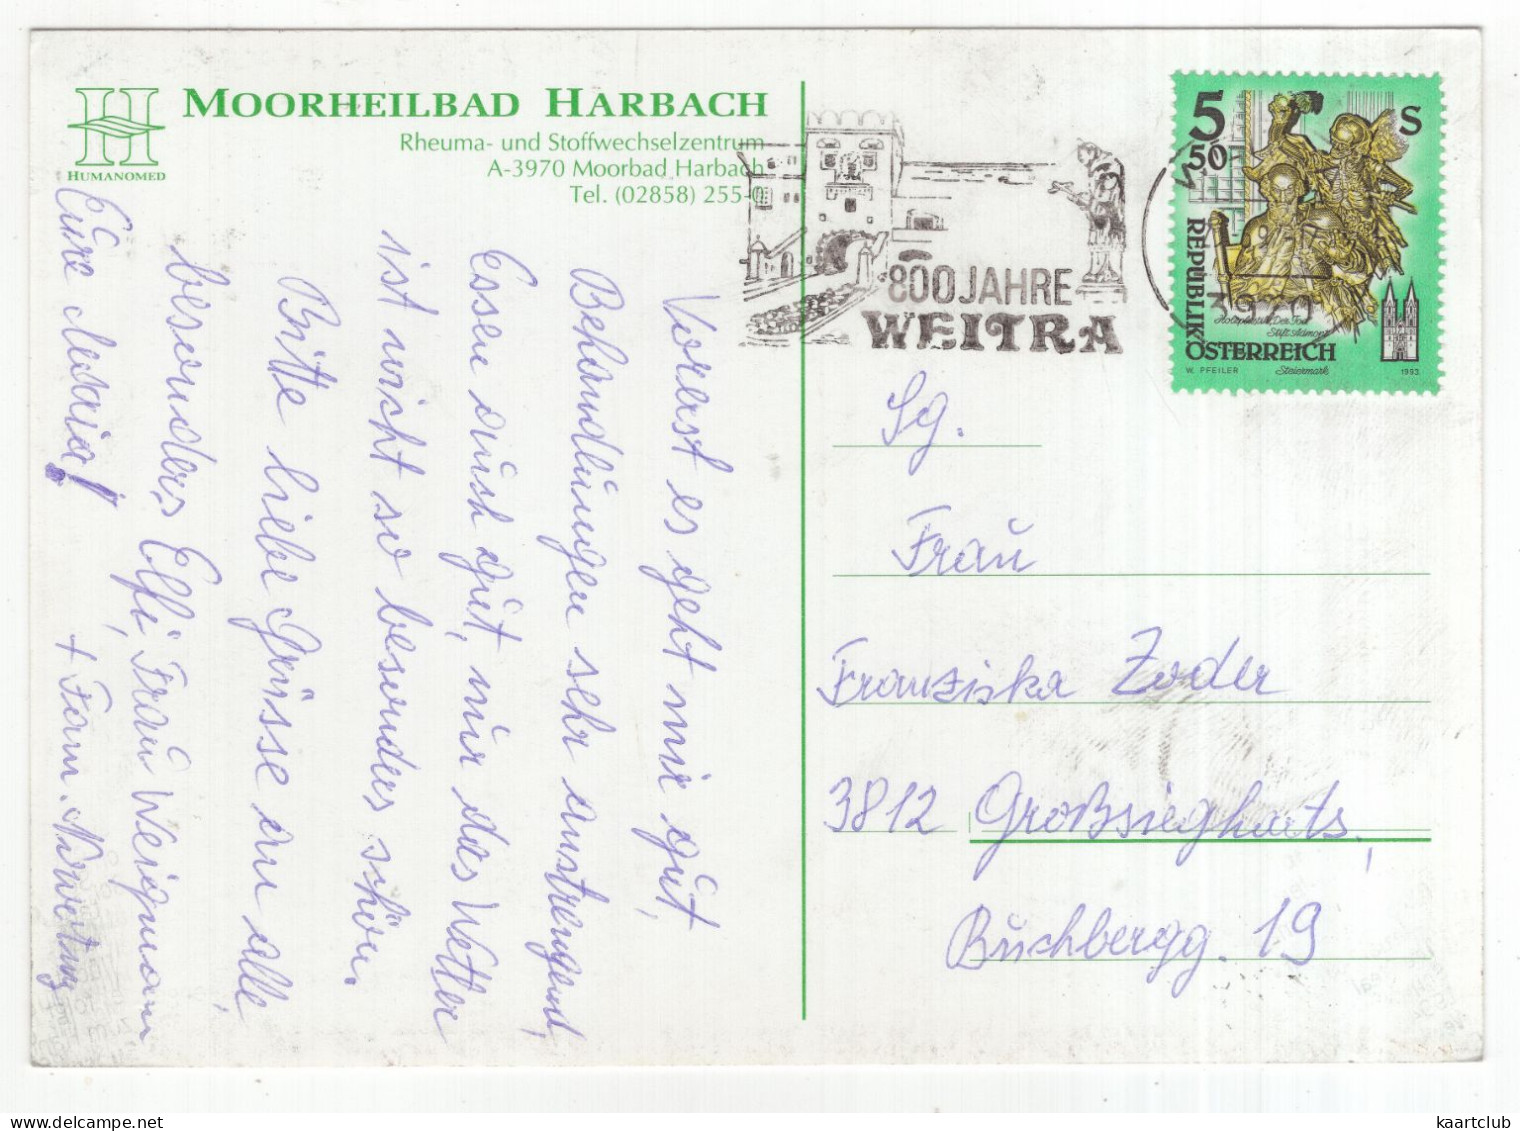 MOORHEILBAD HARBACH
Rheuma- und Stoffwechselzentrum
A-3970 Moorbad Harbach
Tel. (02858) 255-0
HUMANOMED
Vorerst es geht mir gut,
Behandlungen sehr anstrengend,
Essen auch gut, nur das Wetter
ist nicht so besonders schön.
Bitte liebe Grüsse an alle,
besonders Elfi, Frau Weigmann
+ Fam.
Eure Maria!
800 JAHRE
WEITRA
5 50 S
REPUBLIK
ÖSTERREICH
Stift Admont
Steiermark
W. PFEILER
1993
Sg.
Frau
Franziska Zoder
3812 Großsiegharts,
Buchbergg. 19
kaartclub